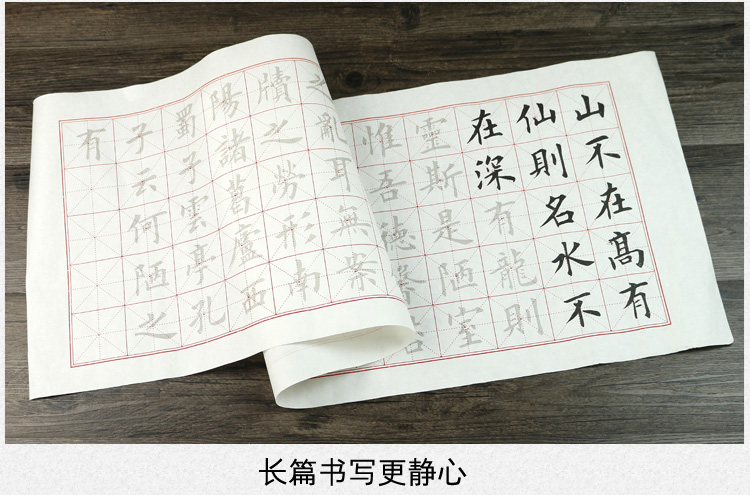 山不在髙有
仙則名水不
在深有龍則
靈斯是陋室
惟吾德馨
之亂耳無案
牘之勞形南
陽諸葛廬西
蜀子雲亭孔
子云何陋之
有
长篇书写更静心